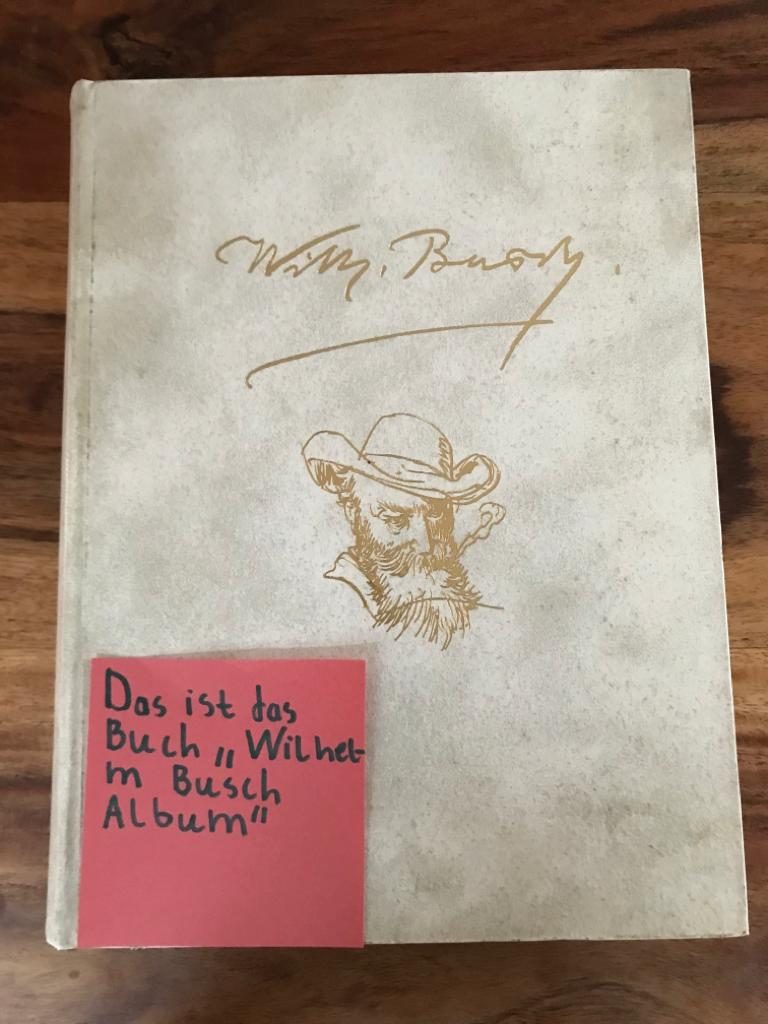 Wilh. Busch.
Das ist das
Buch „Wilhel-
m Busch
Album"